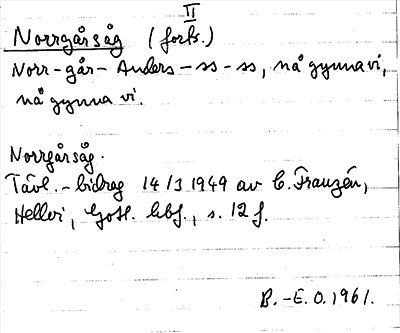 II
Norrgårsåg (forts.)
Norr-går-Anders-ss-ss, nå gynna vi,
nå gynna vi.
Norrgårsåg.
Tävl.-bidrag 14/3 1949 av C. Franzén,
Hellvi, Gotl. hbf., s. 12 f.
B.-E. O. 1961.